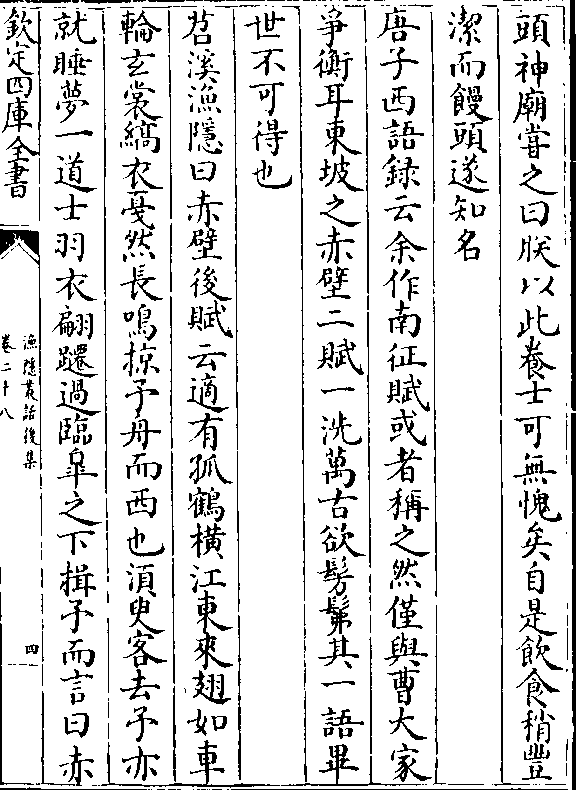 頭神廟嘗之曰朕以此養士可無愧矣自是飲食稍豐
潔而饅頭遂知名
唐子西語録云余作南征賦或者稱之然僅與曹大家
爭衡耳東坡之赤壁二賦一洗萬古欲髣髴其一語畢
世不可得也
苕溪漁隱曰赤壁後賦云適有孤鶴横江東來翅如車
輪玄裳縞衣戞然長鳴掠予舟而西也湏臾客去予亦
就睡夢一道士羽衣翩躚過臨臯之下揖予而言曰赤
欽定四庫全書
漁隱叢話後集
卷二十八
四